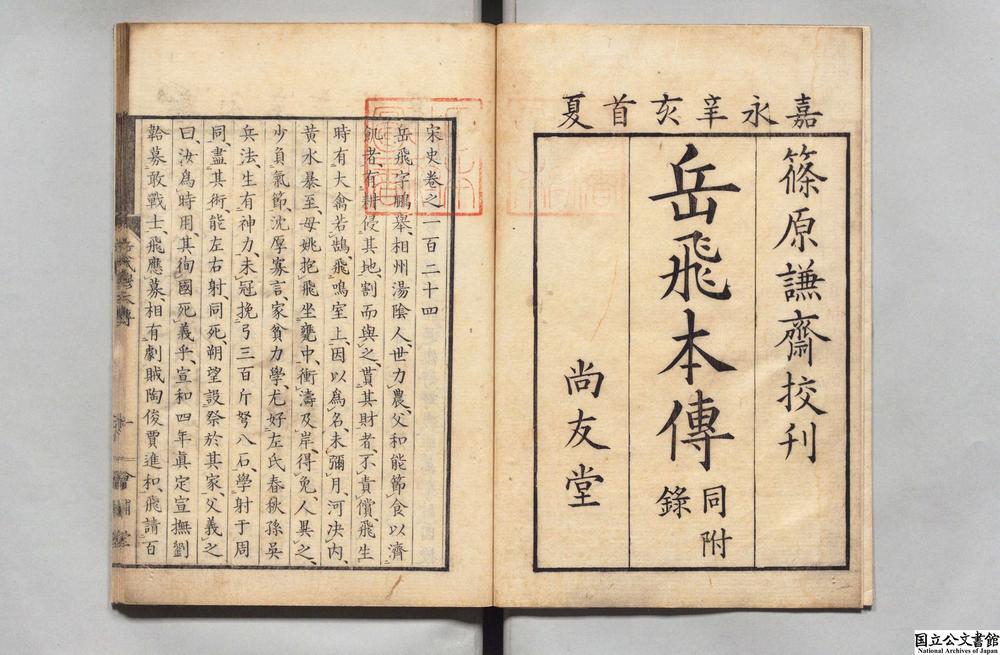 嘉永辛亥首夏
篠原謙齋挍刊
岳飛本傳
同附
錄
尚友堂
宋史卷之一百二十四
岳飛字鵬舉、相州湯陰人、世力農、父和能節食以濟
飢者、有耕侵其地、割而與之、貰其財者、不責償、飛生
時有大禽若鵠、飛鳴室上、因以爲名、未彌月、河决内
黄水暴至、母姚抱飛坐甕中、衝濤及岸、得免、人異之、
少負氣節、沈厚寡言、家貧力學、尤好左氏春秋孫吳
兵法、生有神力、未冠挽弓三百斤弩八石、學射于周
同、盡其術、能左右射、同死、朔望設祭於其家、父義之
曰汝爲時用、其徇國死義乎、宣和四年眞定宣撫劉
韐募敢戰士、飛應募、相有劇賊陶俊賈進和、飛請百
国立公文書館
National Archives of Japan